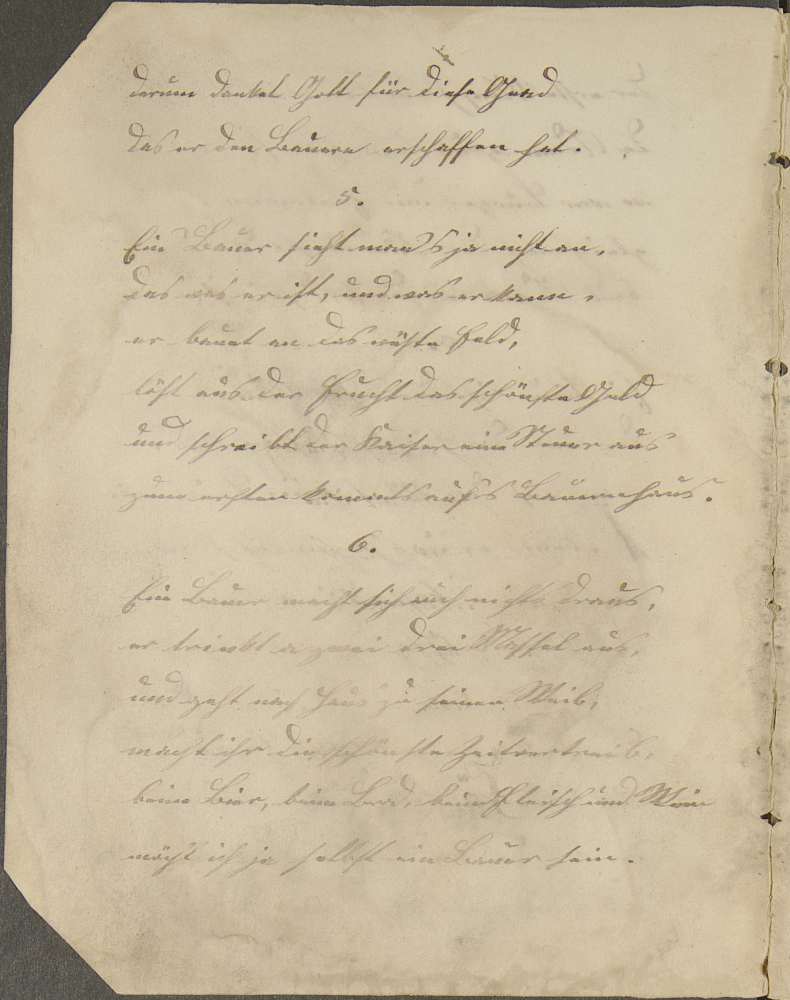 darum danket Gott für diese Gnad
das er den Bauern erschaffen hat.
5.
Ein Bauer sieht man's ja nicht an,
das was er ist, und was er kann,
er baut an das wüste Feld,
löst aus der Frucht das schönste Geld
und schreibt der Kaiser eine Steuer aus
zum ersten kommts aufs Bauernhaus.
6.
Ein Bauer macht sich auch nichts draus,
er trinkt a zwei drei Massel aus,
und geht nach Haus zu seinen Weib,
macht ihr die schönste Zeitvertreib,
beim Bier, beim Brod, beim Fleisch und Wein
möcht ich ja selbst ein Bauer sein.